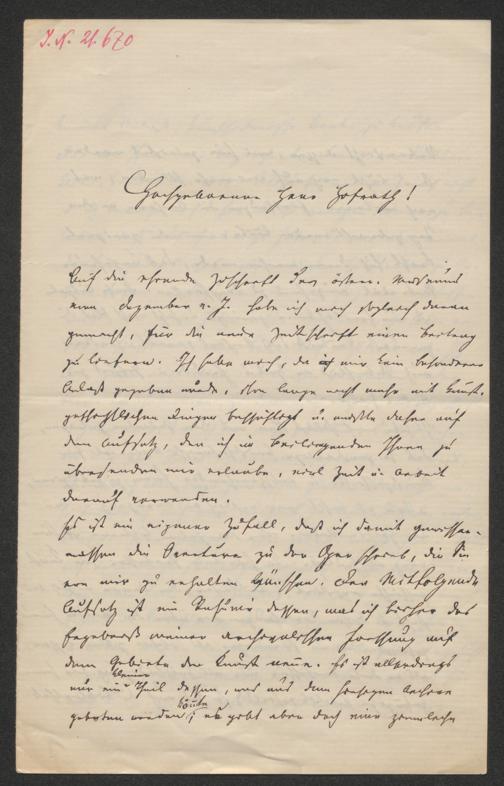 I. N. 21.670
Hochgeborener Herr Hofrath!
Auf die ehrende Zuschrift des österr. Museums
vom Dezember v. J. habe ich mich sogleich daran
gemacht, für die neue Zeitschrift einen Beitrag
zu liefern. Ich habe mich, da ich mir kein besonderer
Anlaß gegeben wurde, schon lange nicht mehr mit kunst-
geschichtlichen Dingen beschäftigt u. mußte daher auf
den Aufsatz, den ich im beiliegenden Ihnen zu
übersenden mir erlaube, viel Zeit u. Arbeit
darauf verwenden.
Es ist ein eigener Zufall, daß ich damit gewisser-
massen die Overture zu der Oper schrieb, die Sie
von mir zu erhalten wünschen. Der mitfolgende
Aufsatz ist ein Resumé dessen, was ich bisher das
Ergebniß meiner archivalischen Forschung auf
dem Gebiete der Kunst nenne. Es ist allerdings
nur ein kleiner Theil dessen, was aus dem hiesigen Archive
geboten werden könnte; es gibt aber doch eine ziemliche